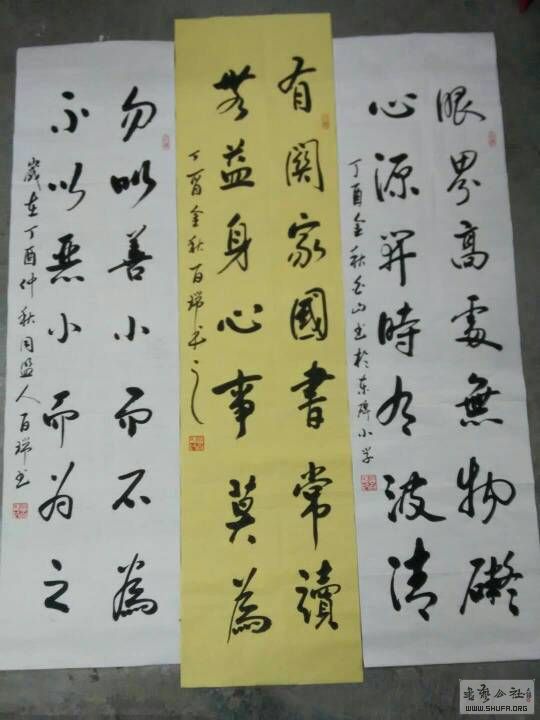 眼界高處無物礙
心源開時有波清
丁酉金秋 山书於东 小学
有關家國書常讀
無益身心事莫為
丁酉金秋百瑞书之
勿以善小而不為
不以惡小而为之
歲在丁酉仲秋同盟人百瑞书
書藝公社
WWW.SHUFA.ORG